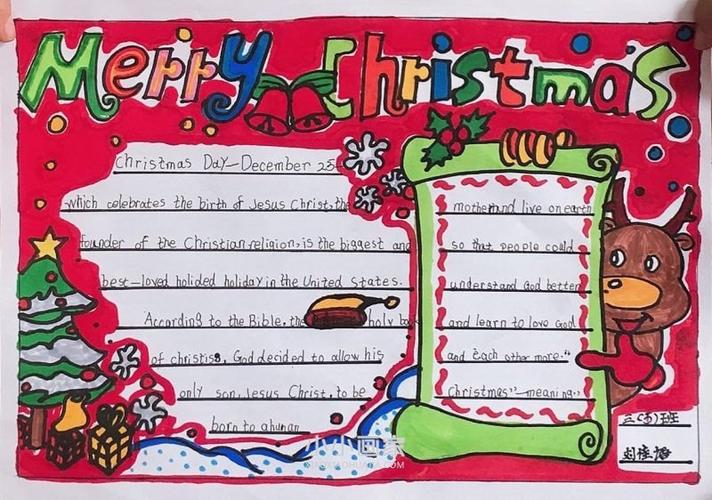 Merry Christmas
Christmas Day—December 25
which celebrates the birth of Jesus Christ, the
founder of the Christian religion, is the biggest and
best-loved holided holiday in the United States.
According to the Bible, the holy book
of christiss, God decided to allow his
only son, Jesus Christ, to be
born to ahuman
mother and live on earth
so that people could
understand God better
and learn to love God
and each other more."
Christmas" meaning"
三(5)班
小小画家
XIAOXIAOHUAJIA.COM